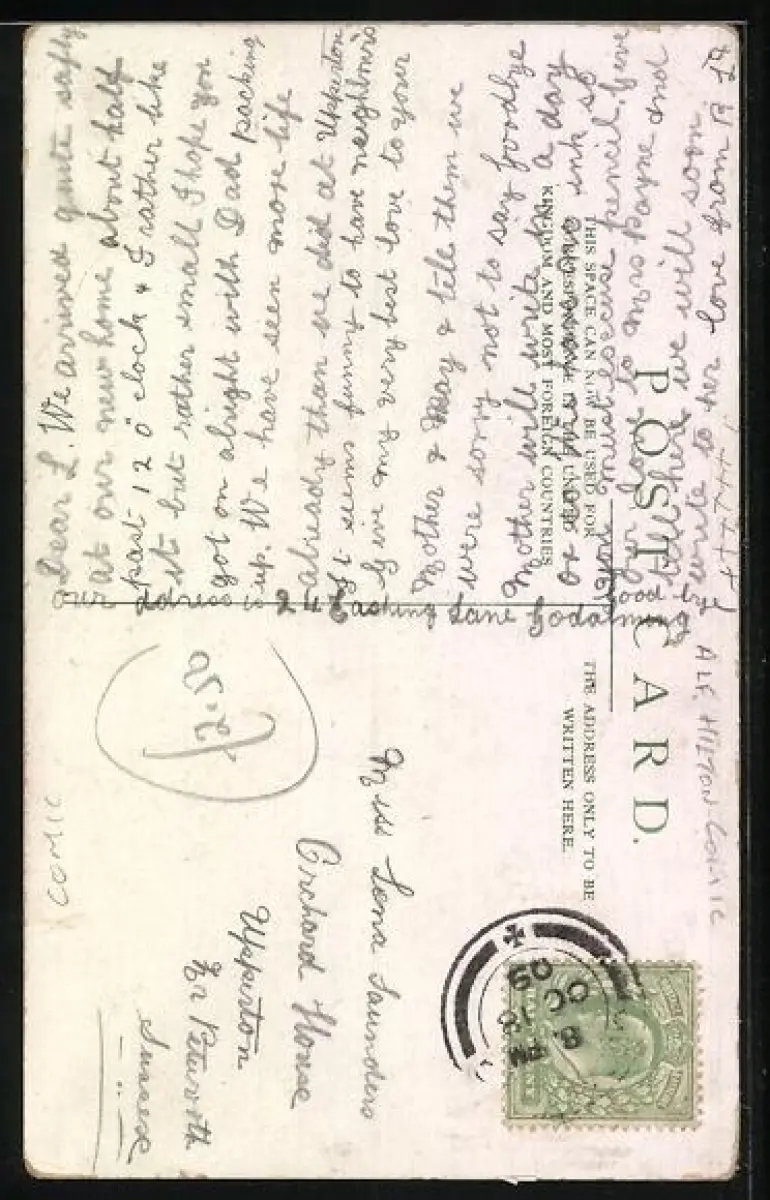 POST CARD.
THIS SPACE CAN NOW BE USED FOR
KINGDOM AND MOST FOREIGN COUNTRIES
THE ADDRESS ONLY TO BE
WRITTEN HERE.
Dear L. We arrived quite safly
at our new home about half
past 12 o'clock & I rather like
it but rather small I hope you
got on alright with Dad packing
up. We have seen more life
already than we did at Upperton
It seems funny to have neighbours
Give my very best love to your
Mother & May & tell them we
were sorry not to say goodbye
Mother will write in a day
or ink so
you must excuse pencil. Give
my love to Mrs Payne and
tell her we will soon
write to her love from B.
Our address is 24 Eashing Lane Godalming
Miss Lena Saunders
Orchard House
Upperton
Nr Petworth
Sussex
£2.50
COMIC
ALF. HILTON-COMIC
8. PM
OC 10
09